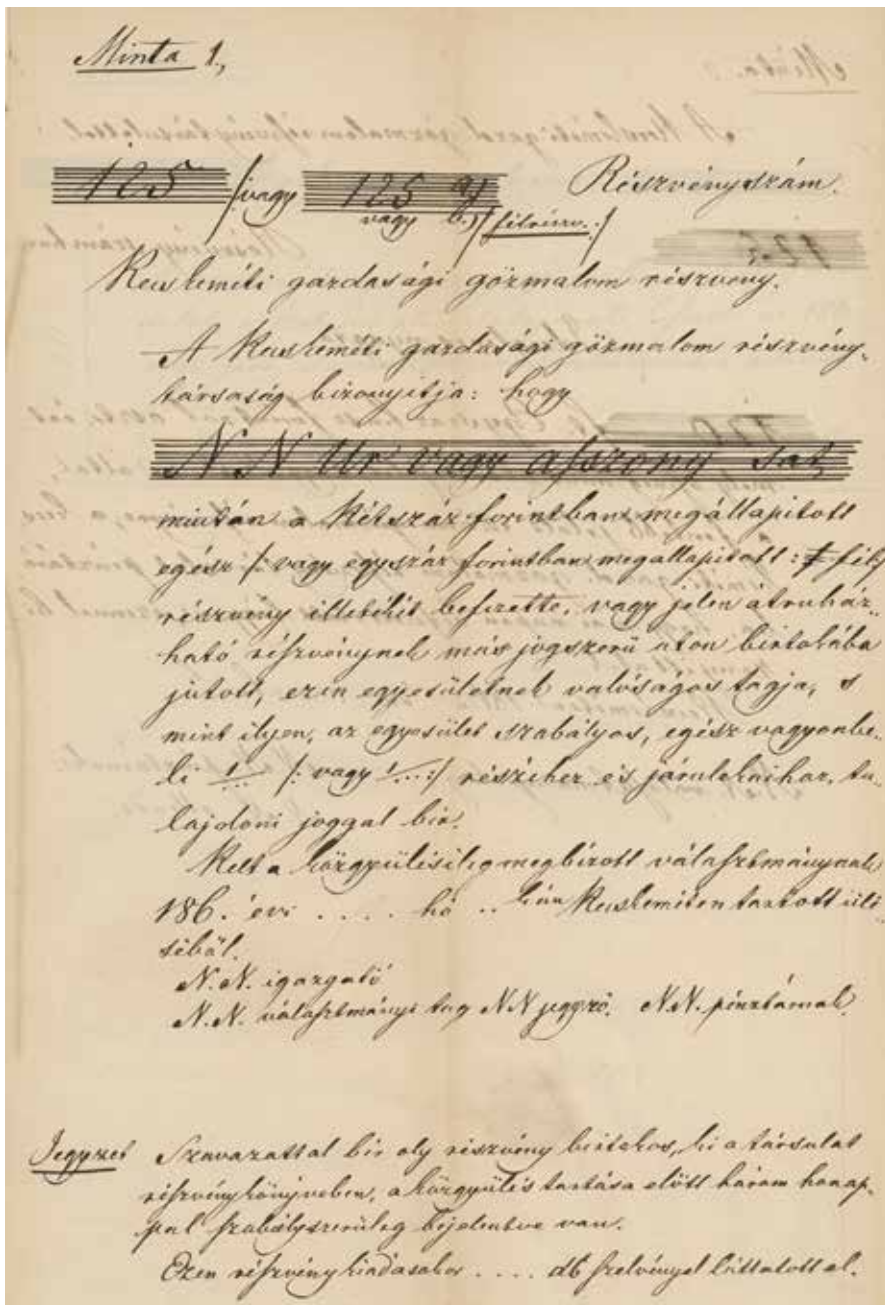 Minta 1.,
125 /: vagy 125 a.) Részvényszám.
vagy b.) félrészv. :/
Kecskeméti gazdasági gőzmalom részvény.
A Kecskeméti gazdasági gőzmalom részvény-
társaság bizonyitja: hogy
N N Ur vagy aſszony sat,
miután a kétszáz forintban megállapitott
egész /: vagy egyszáz forintban megallapitott :/ fél :/
részvény illetékét befizette, vagy jelen átruház-
ható réſzvénynek más jogszerű uton birtokába
jutott, ezen egyesületnek valóságos tagja, s
mint ilyen, az egyesület szabályos, egész vagyonbe-
li 1/... /: vagy 1/... :/ részéhez és járulékaihoz, tu-
lajdoni joggal bir.
Kelt a közgyülésileg megbizott válaſztmánynak
186. évi .... hó .. kán Kecskeméten tartott ülé-
séből.
N.N. igazgató
N.N. válaſztmányi tag N N jegyző. N.N. pénztárnok.
Jegyzet Szavazattal bir oly részvény birtokos, ki a társulat
réſzvénykönyvében, a közgyülés tartása előtt három honap-
pal ſzabályszerüleg bejelentve van.
Ezen réſzvény kiadásakor .... db ſzelvényel láttatott el.